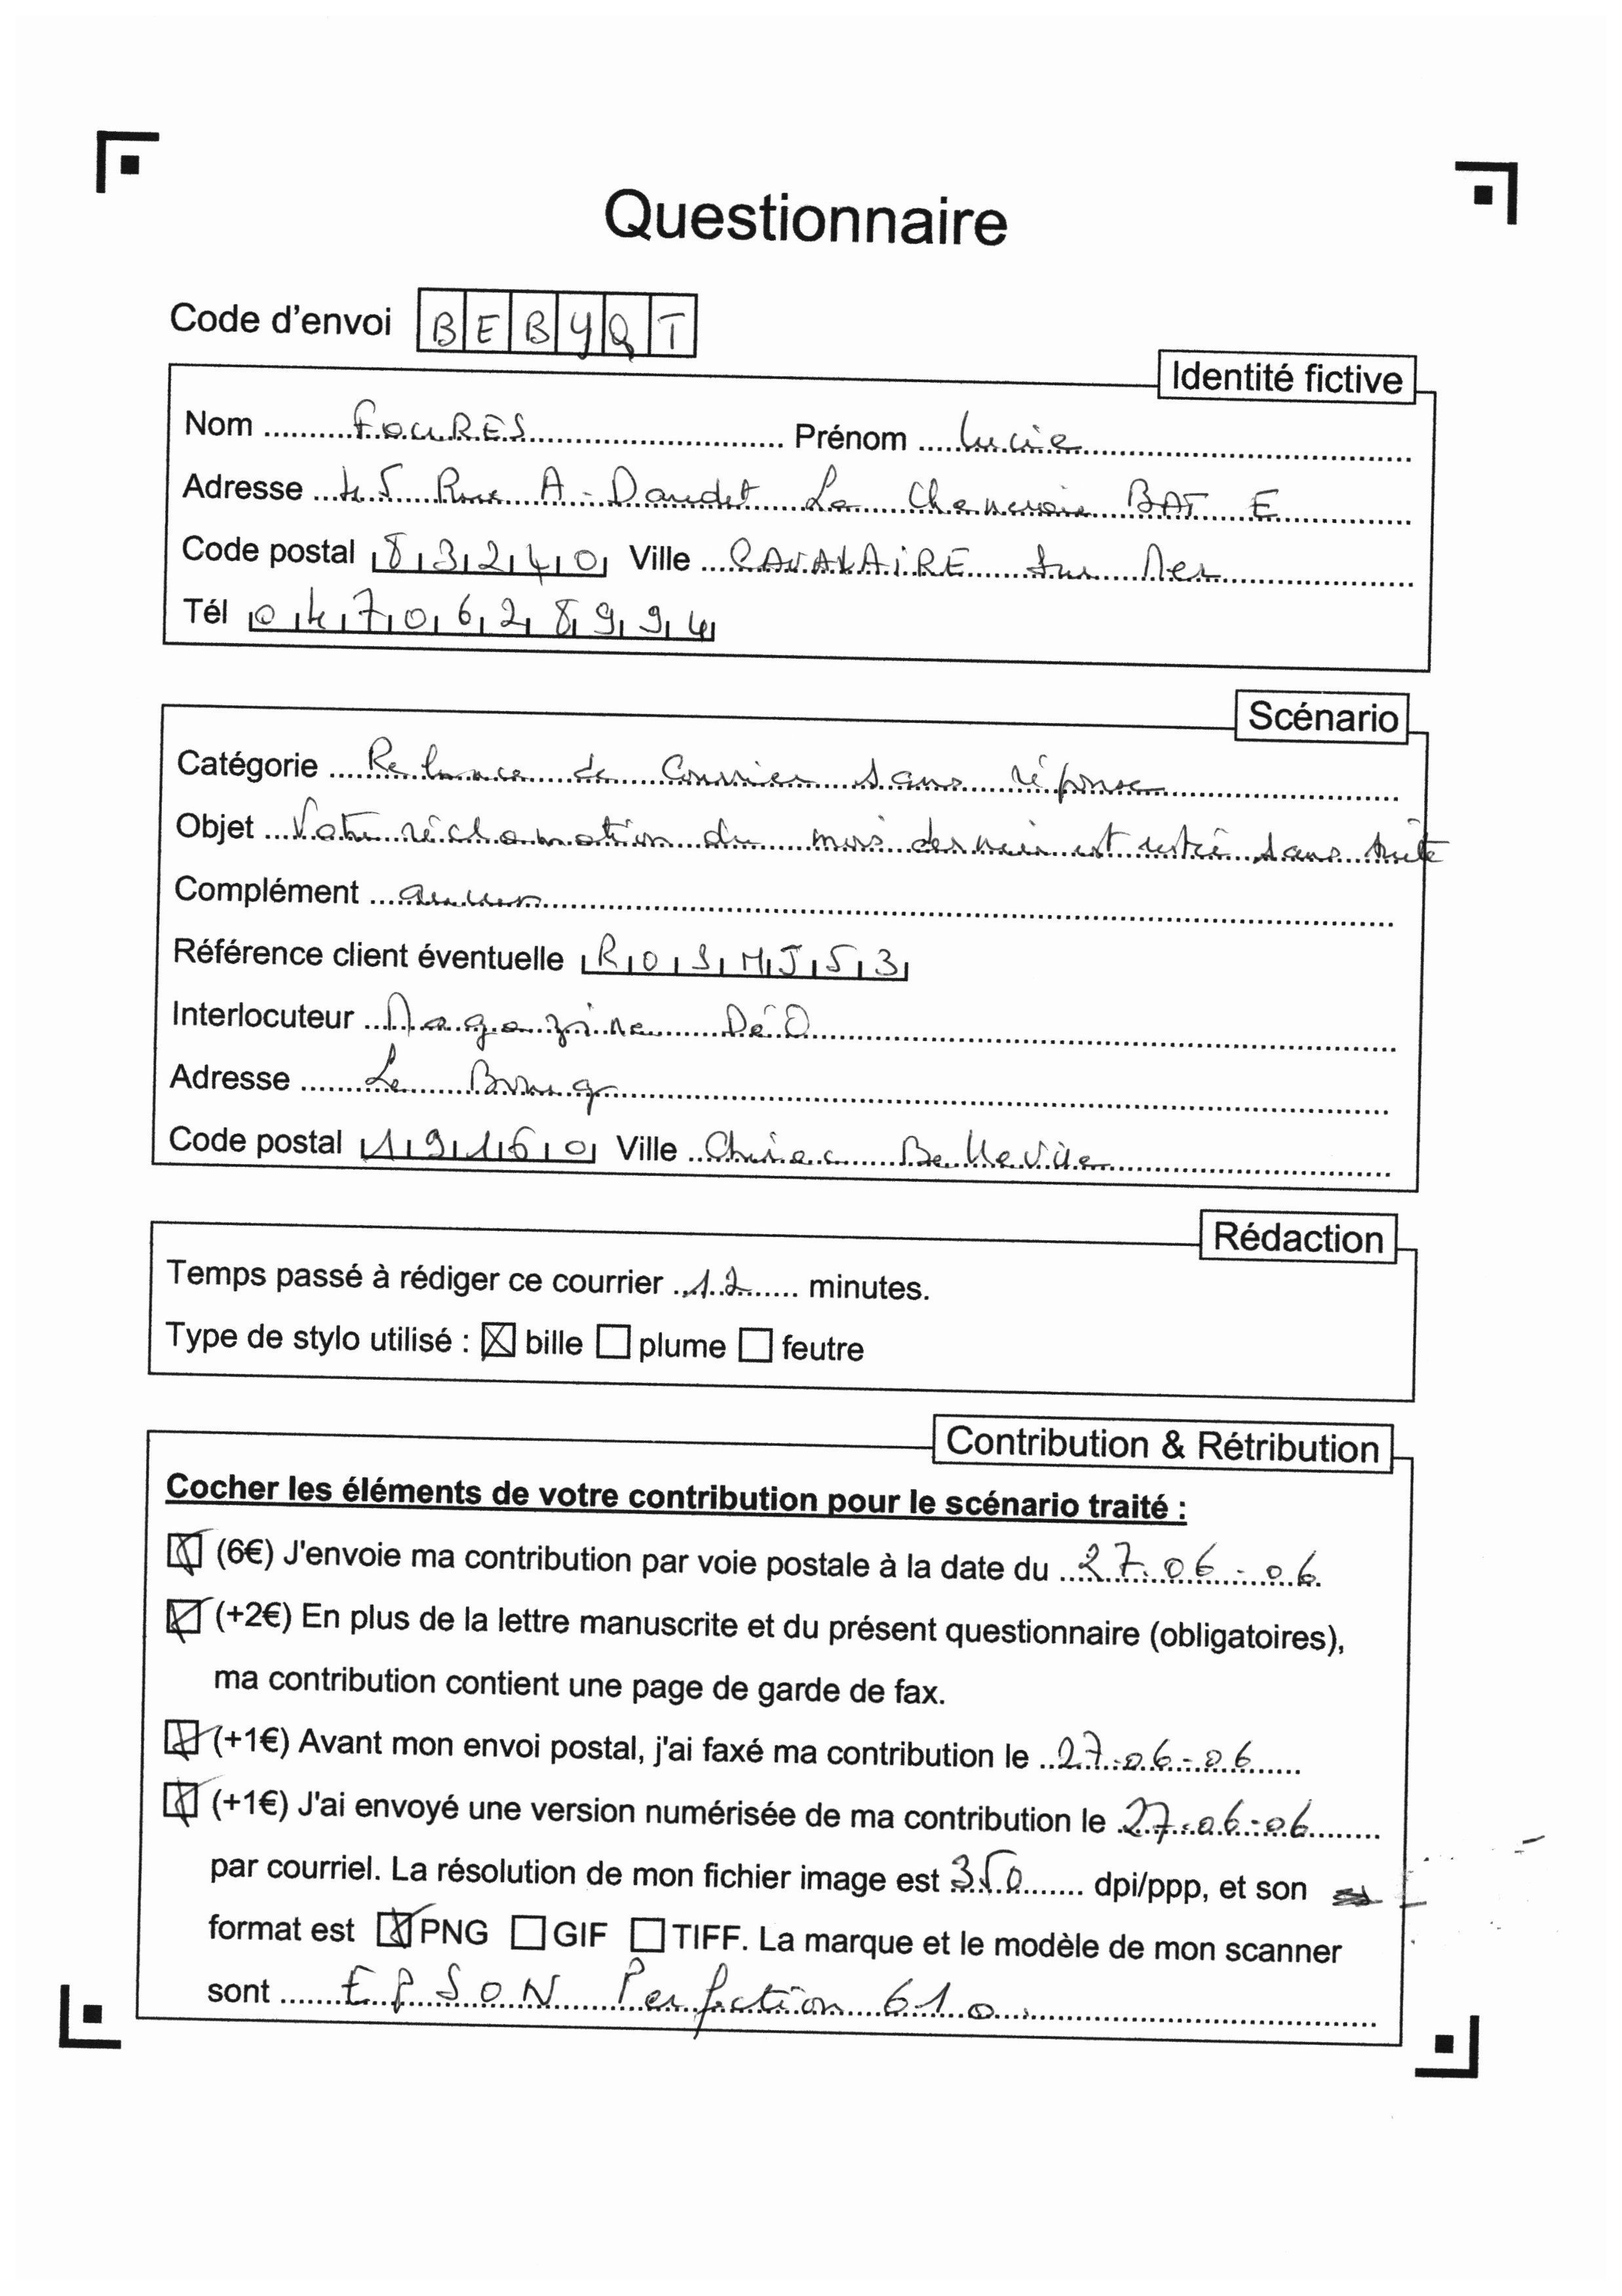 Questionnaire
Code d'envoi BEBYQT
Identité fictive
Nom FOURES Prénom Lucie
Adresse 45 Rue A. Daudet La Cheneraie BAT E
Code postal 83240 Ville CAVALAIRE sur Mer
Tél 0470628994
Scénario
Catégorie Relance de Courrier sans réponse
Objet Votre réclamation du mois dernier est restée sans suite
Complément aucun
Référence client éventuelle ROSMJ53
Interlocuteur Magazine DéO
Adresse Le Bourg
Code postal 19160 Ville Chirac Bellevue
Rédaction
Temps passé à rédiger ce courrier 12 minutes.
Type de stylo utilisé : ☒ bille ☐ plume ☐ feutre
Contribution & Rétribution
Cocher les éléments de votre contribution pour le scénario traité :
☒ (6€) J'envoie ma contribution par voie postale à la date du 27.06-06
☒ (+2€) En plus de la lettre manuscrite et du présent questionnaire (obligatoires),
ma contribution contient une page de garde de fax.
☒ (+1€) Avant mon envoi postal, j'ai faxé ma contribution le 27-06-06
☒ (+1€) J'ai envoyé une version numérisée de ma contribution le 27-06-06
par courriel. La résolution de mon fichier image est 350 dpi/ppp, et son
format est ☒ PNG ☐ GIF ☐ TIFF. La marque et le modèle de mon scanner
sont EPSON Perfection 610.